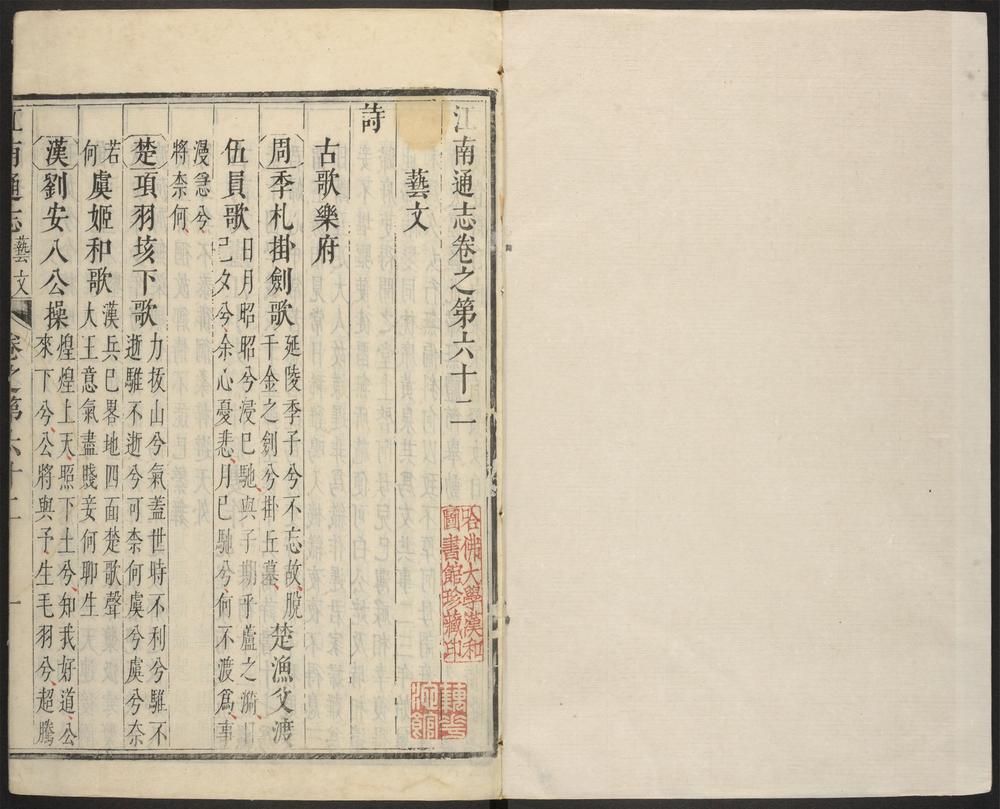 江南通志卷之第六十二
哈佛大學漢和
圖書館珍藏印
藝文
詩
古歌樂府
周季札掛劍歌
延陵季子兮不忘故脫
千金之劍兮掛丘墓
楚漁父渡
伍員歌
日月昭昭兮浸已馳與子期乎蘆之漪
已夕兮余心憂悲月已馳兮何不渡爲事
浸急兮
將柰何
楚項羽垓下歌
力拔山兮氣蓋世時不利兮騅不
逝騅不逝兮可柰何虞兮虞兮柰
若
何
虞姬和歌
漢兵已畧地四面楚歌聲
大王意氣盡賤妾何聊生
漢劉安八公操
煌煌上天照下土兮知我好道公
來下兮公將與予生毛羽兮超騰
江南通志
藝文
卷之第六十二
一